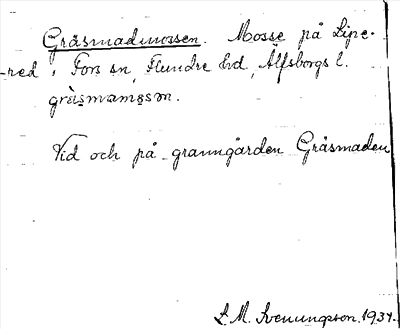 Gräsmadmossen. Mosse på Lipe-
red i Fors sn, Flundre hd, Älfsborgs l.
gräs̤mamo̤sm.
Vid och på granngården Gräsmaden
L. M. Svenungsson. 1934.